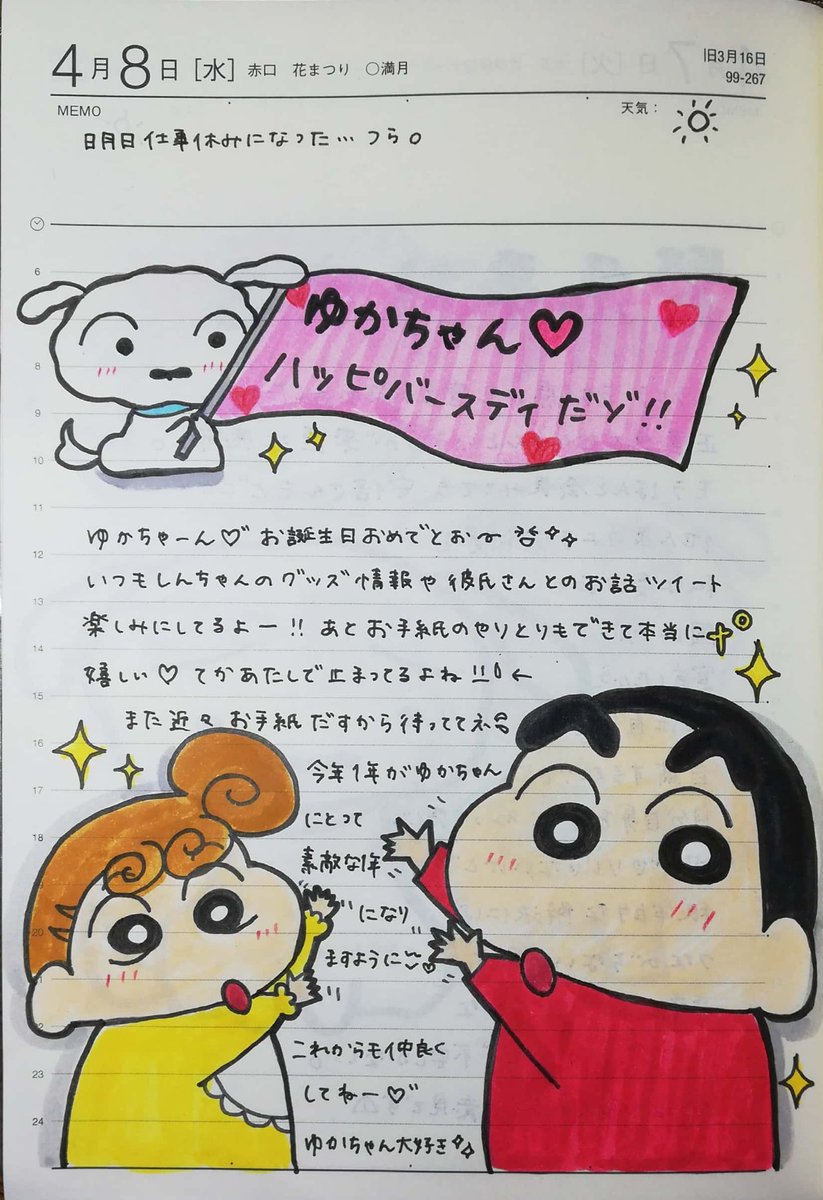 4月8日[水] 赤口 花まつり ○満月
旧3月16日
99-267
MEMO
天気:
明日仕事休みになった… つら。
ゆかちゃん♡
ハッピバースディだゾ!!
6
8
9
10
11
12
13
14
15
16
17
18
20
22
23
24
ゆかちゃーん♡ お誕生日おめでとお〜
いつもしんちゃんのグッズ情報や彼氏さんとのお話ツイート
楽しみにしてるよー!! あとお手紙のやりとりもできて本当に
嬉しい♡ てかあたしで止まってるよね!! ←
また近々お手紙だすから待っててネ
今年1年がゆかちゃん
にとって
素敵な1年
になり
ますように
これからモ仲良く
してねー♡
ゆかちゃん大好き